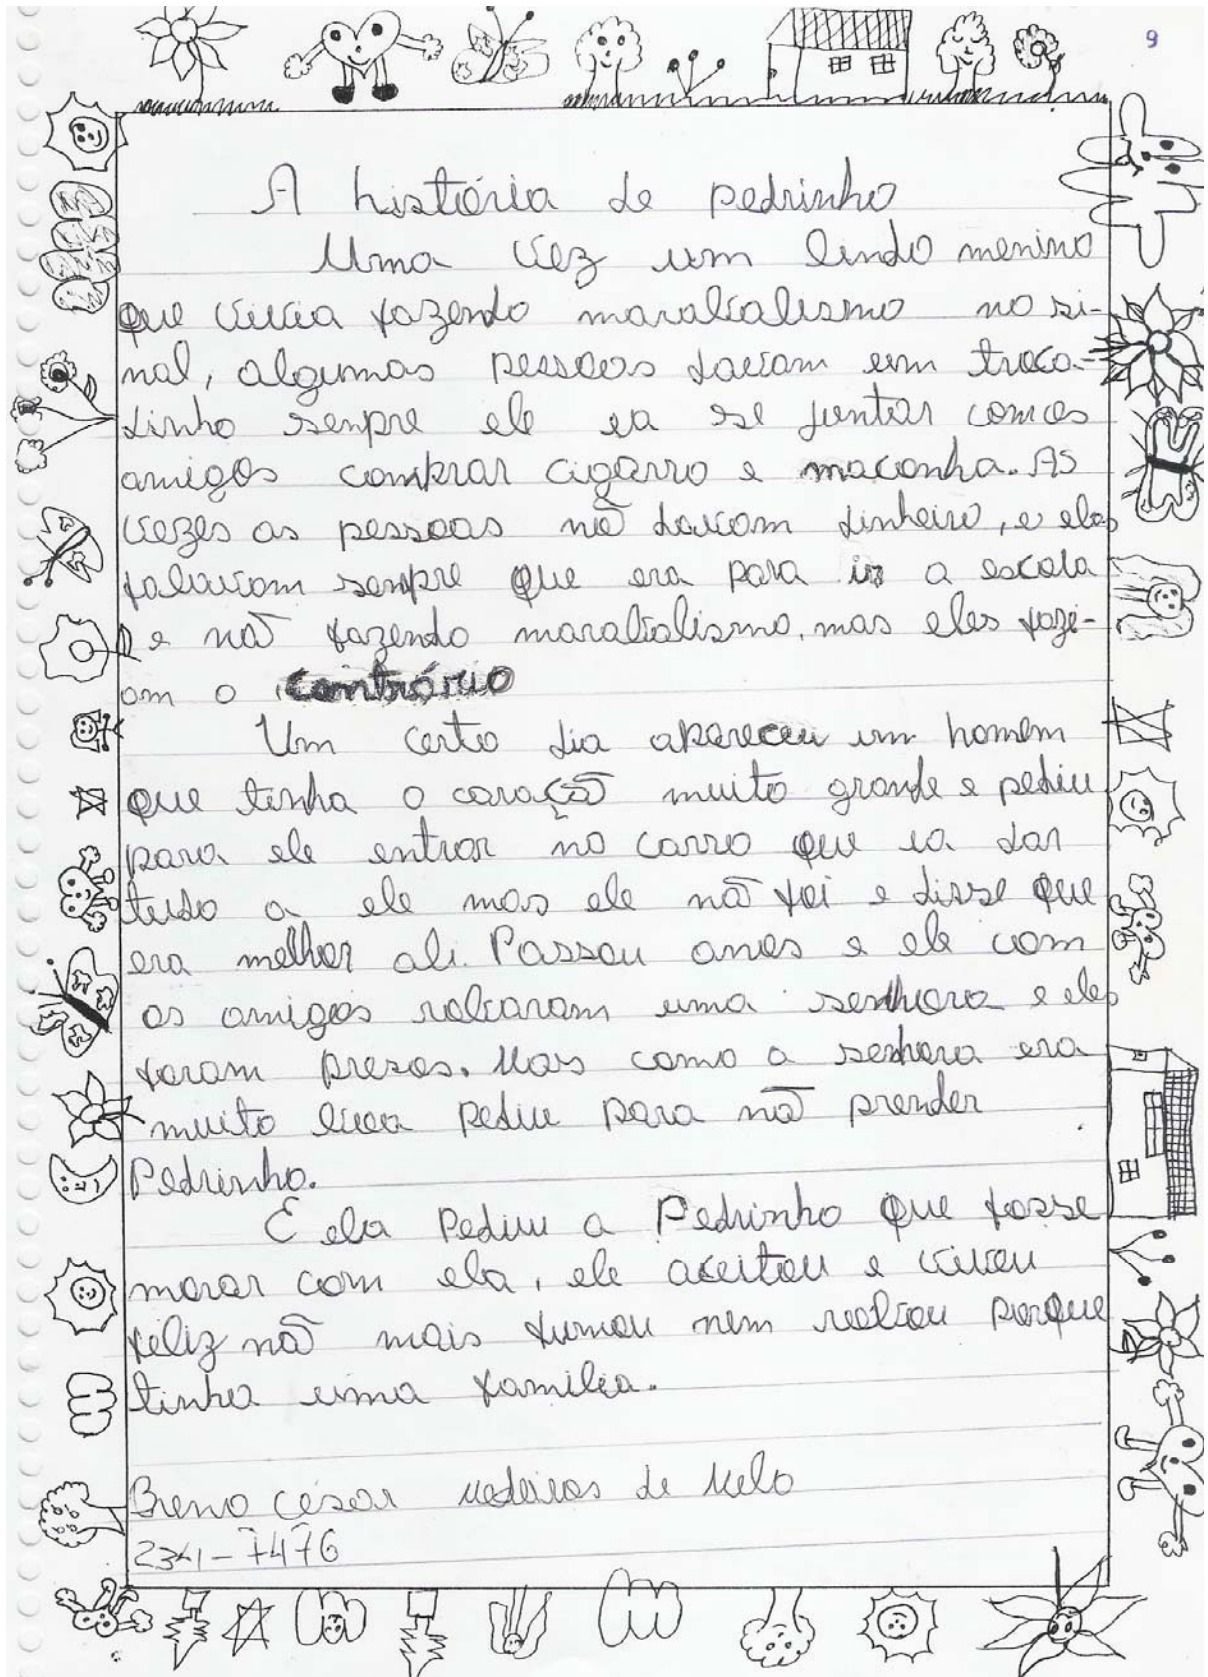 9
A história de pedrinho
Uma vez um lindo menino
que vivia fazendo maralialismo no si-
nal, algumas pessoas davam um troca-
dinho senpre ele ia se juntar com os
amigos comprar cigarro e maconha. AS
vezes as pessoas não davam dinheiro, e eles
falavam senpre que era para ir a escola
e não fazendo maralialismo, mas eles fazi-
am o contrário
Um certo dia apareceu um homem
que tinha o coração muito grande e pediu
para ele entrar no carro que ia dar
tudo a ele mas ele não foi e disse que
era melhor ali. Passou anos e ele com
os amigos robaram uma senhora e eles
foram presos. Mas como a senhora era
muito boa pediu para não prender
Pedrinho.
E ela Pediu a Pedrinho que fosse
morar com ela, ele aceitou e viveu
feliz não mais fumou nem robou porque
tinha uma familia.
Breno César Medeiros de Melo
2341-7476